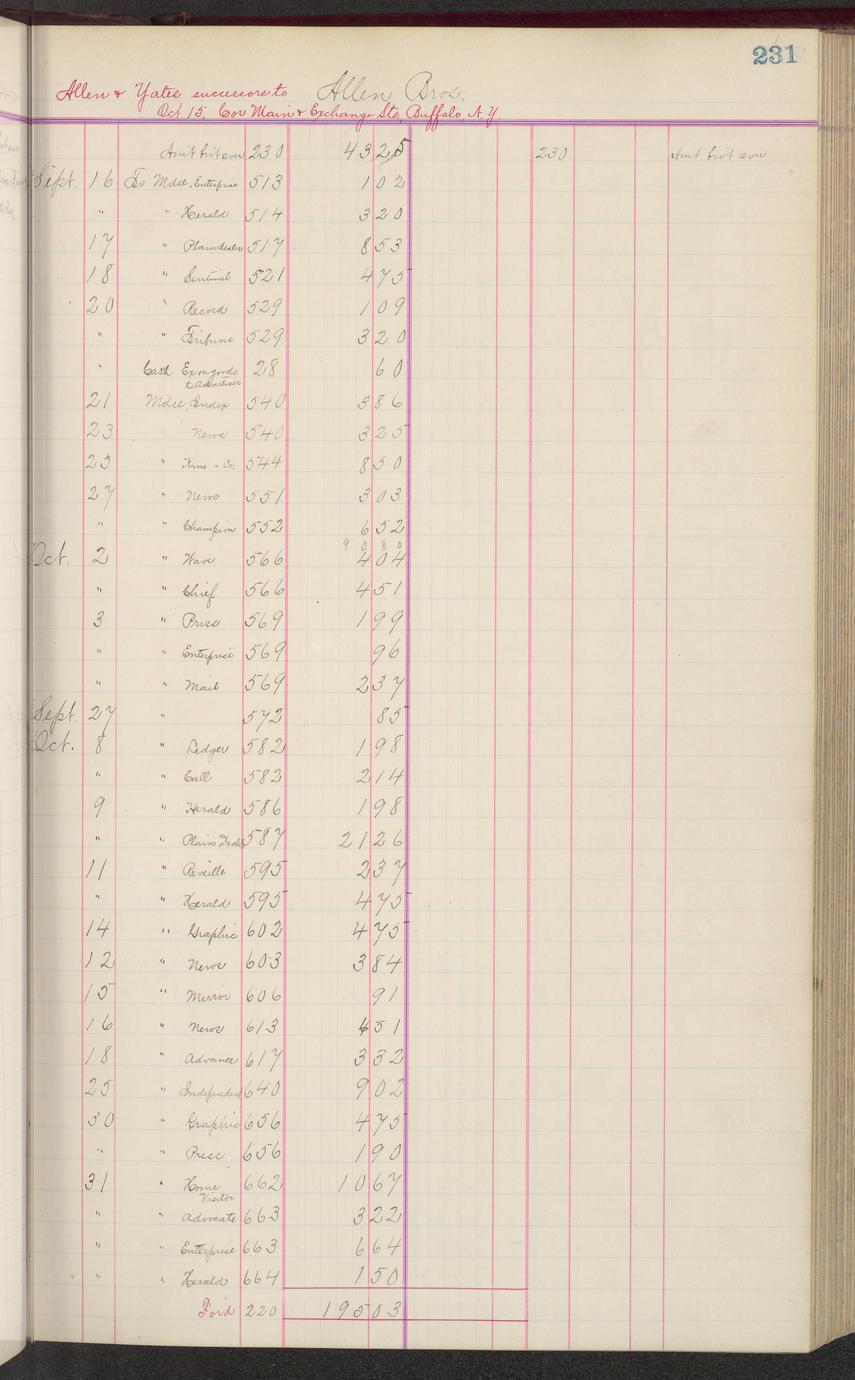 231
Allen & Yates successors to Allen Bros.
Oct 15, Cor Main & Exchange Sts, Buffalo, N.Y.
Amt bro't over 230 43 25 230 Amt bro't over
Sept. 16 To Mdse. Enterprise 513 1 02
" " Herald 514 3 20
17 " Plaindealer 517 8 53
18 " Sentinel 521 4 75
20 " Record 529 1 09
" " Tribune 529 3 20
" Cash Ex on goods 28 60
to Advertiser
21 Mdse. Index 540 3 86
23 " News 540 3 25
25 " Kane & Co. 544 8 50
27 " News 551 3 03
" " Champion 552 6 52
90 80
Oct. 2 " Wave 566 4 04
" " Chief 566 4 51
3 " Press 569 1 99
" " Enterprise 569 96
" " Mail 569 2 37
Sept. 27 " 572 85
Oct. 8 " Ledger 582 1 98
" " Call 582 2 14
9 " Herald 586 1 98
" " Plain Dealer 587 21 26
11 " Reveille 595 2 37
" " Herald 595 4 75
14 " Graphic 602 4 75
12 " News 603 3 84
15 " Mirror 606 91
16 " News 613 4 51
18 " Advance 617 3 32
25 " Independent 640 9 02
30 " Graphic 656 4 75
" " Press 656 1 90
31 " Home 662 10 67
Visitor
" " Advocate 663 3 22
" " Enterprise 663 6 64
" " Herald 664 1 50
For'd 220 195 03